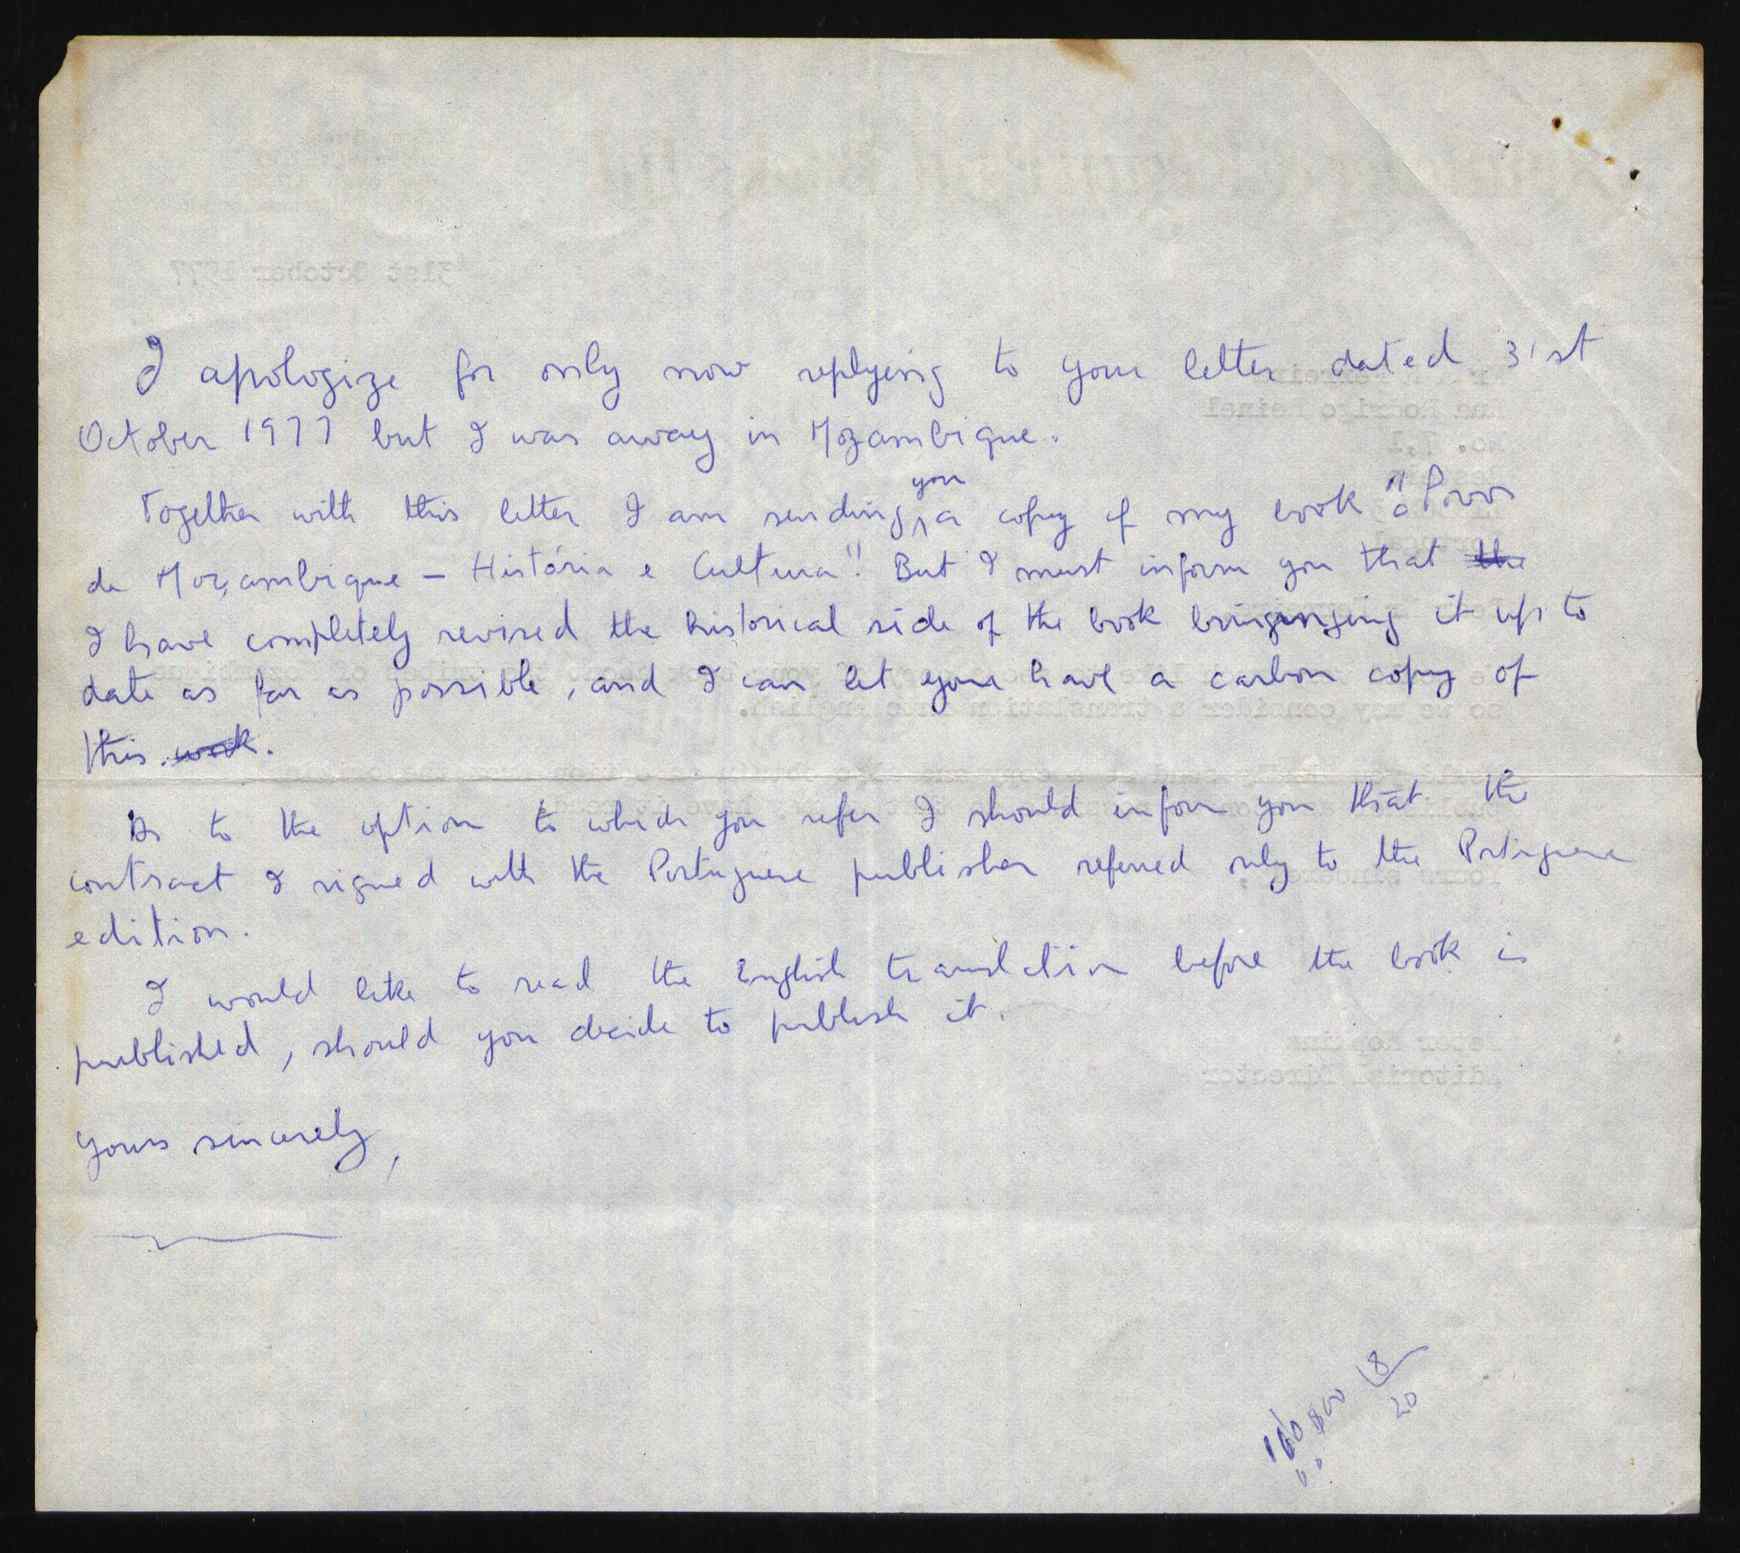 I apologize for only now replying to your letter dated 31st
October 1977 but I was away in Mozambique.
Together with this letter I am sending you a copy of my book "O Povo
de Moçambique – História e Cultura". But I must inform you that the
I have completely revised the historical side of the book bringinging it up to
date as far as possible, and I can let you have a carbon copy of
this work.
As to the option to which you refer I should inform you that the
contract I signed with the Portuguese publisher referred only to the Portuguese
edition.
I would like to read the English translation before the book is
published, should you decide to publish it.
Yours sincerely,
160$00 8
00 20
31st October 1977
Rua Rodrigo Reinel
so we may consider a translation into English.
Peter Hopkins
Editorial Director